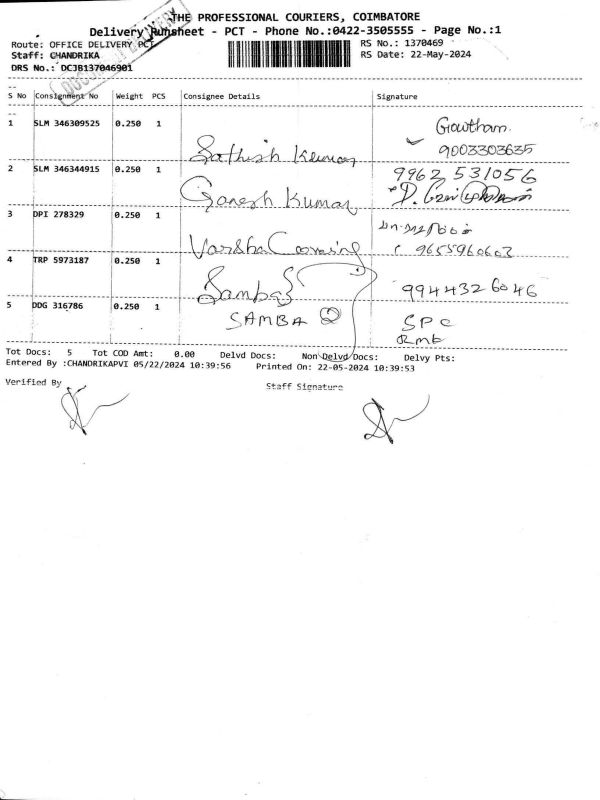 THE PROFESSIONAL COURIERS, COIMBATORE
Delivery Runsheet - PCT - Phone No.:0422-3505555 - Page No.:1
Route: OFFICE DELIVERY PCT
RS No.: 1370469
Staff: CHANDRIKA
RS Date: 22-May-2024
DRS No.: DCJB137046901
DELIVERY
S No Consignment No Weight PCS Consignee Details Signature
1 SLM 346309525 0.250 1 Sathish Kumar Gowtham. 9003303635
2 SLM 346344915 0.250 1 Ganesh Kumar 9962 531056
3 DPI 278329 0.250 1 Varsha 9655960603
4 TRP 5973187 0.250 1 Samba 9944326046
5 DDG 316786 0.250 1 SAMBA 2 SPC
Tot Docs: 5 Tot COD Amt: 0.00 Delvd Docs: Non Delvd Docs: Delvy Pts:
Entered By :CHANDRIKAPVI 05/22/2024 10:39:56 Printed On: 22-05-2024 10:39:53
Verified By
Staff Signature